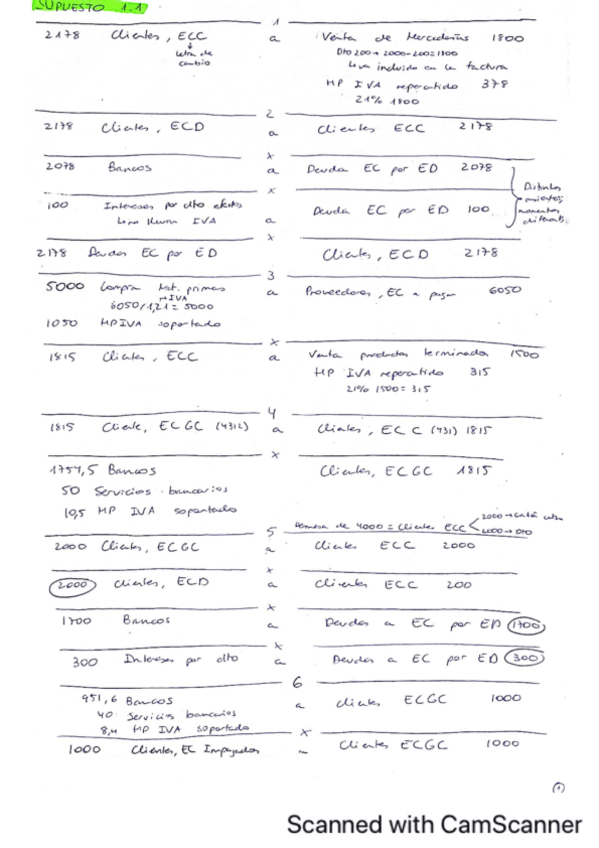 SUPUESTO 1.1
1
2178 Clientes, ECC a Venta de Mercaderías 1800
letra de cambio
Dto 200 → 2000-200=1800
incluido en la factura
HP IVA repercutido 378
21% 1800
2
2178 Clientes, ECD a Clientes ECC 2178
x
2078 Bancos a Deuda EC por ED 2078
x
100 Intereses por dto efectos a Deuda EC por ED 100
IVA
Distintos
momentos
x
2178 Deudas EC por ED Clientes, ECD 2178
3
5000 Compra Mat. primas a Proveedores, EC a pagar 6050
→ IVA
6050/1,21 = 5000
1050 HP IVA soportado
x
1815 Clientes, ECC a Venta productos terminados 1500
HP IVA repercutido 315
21% 1500 = 315
4
1815 Cliente, ECGC (4312) a Clientes, ECC (431) 1815
x
1754,5 Bancos Clientes, ECGC 1815
50 Servicios bancarios
10,5 HP IVA soportado
Remesa de 4000 = Clientes ECC
2000 →
→ Dto
5
2000 Clientes, ECGC a Clientes ECC 2000
x
2000 Clientes, ECD a Clientes ECC 200
x
1700 Bancos a Deudas a EC por ED 1700
x
300 Intereses por dto a Deudas a EC por ED 300
6
951,6 Bancos a Clientes ECGC 1000
40 Servicios bancarios
8,4 HP IVA soportado
x
1000 Clientes, EC Impagados a Clientes ECGC 1000
1
Scanned with CamScanner